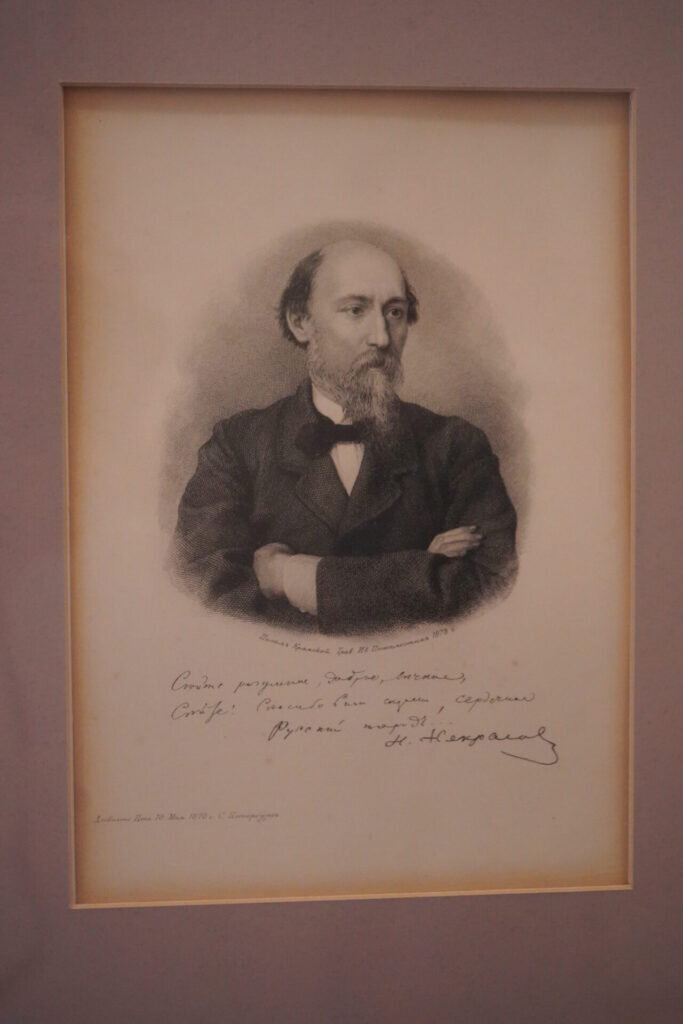 Писалъ Крамской. Грав. Ив. Пожалостинъ 1878 г.
Сѣйте разумное, доброе, вѣчное,
Сѣйте! Спасибо вамъ скажетъ, сердечное
Русскій народъ...
Н. Некрасовъ
Дозволено Ценз. 10 Мая 1878 г. С. Петербургъ